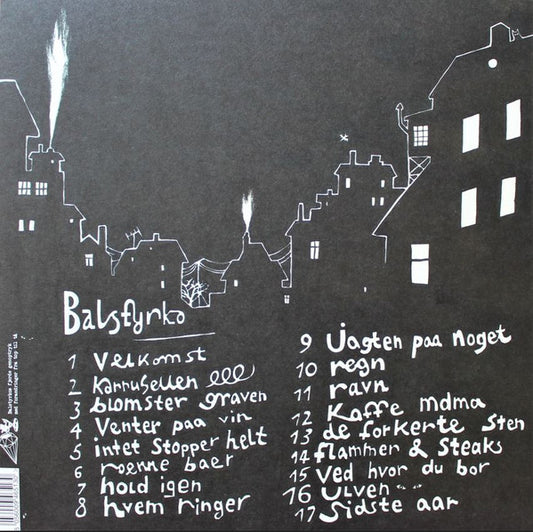 Balstyrko
1 Velkomst
2 Karrusellen
3 blomster graven
4 Venter paa vin
5 intet Stopper helt
6 roenne baer
7 hold igen
8 hvem ringer
9 Jagten paa Noget
10 regn
11 ravn
12 Kaffe mdma
13 de forkerte Sten
14 flammer & Steaks
15 Ved hvor du bor
16 Ulven
17 Sidste aar
Balstyrkos fjerde genoptryk
med forandringer fra top til tå